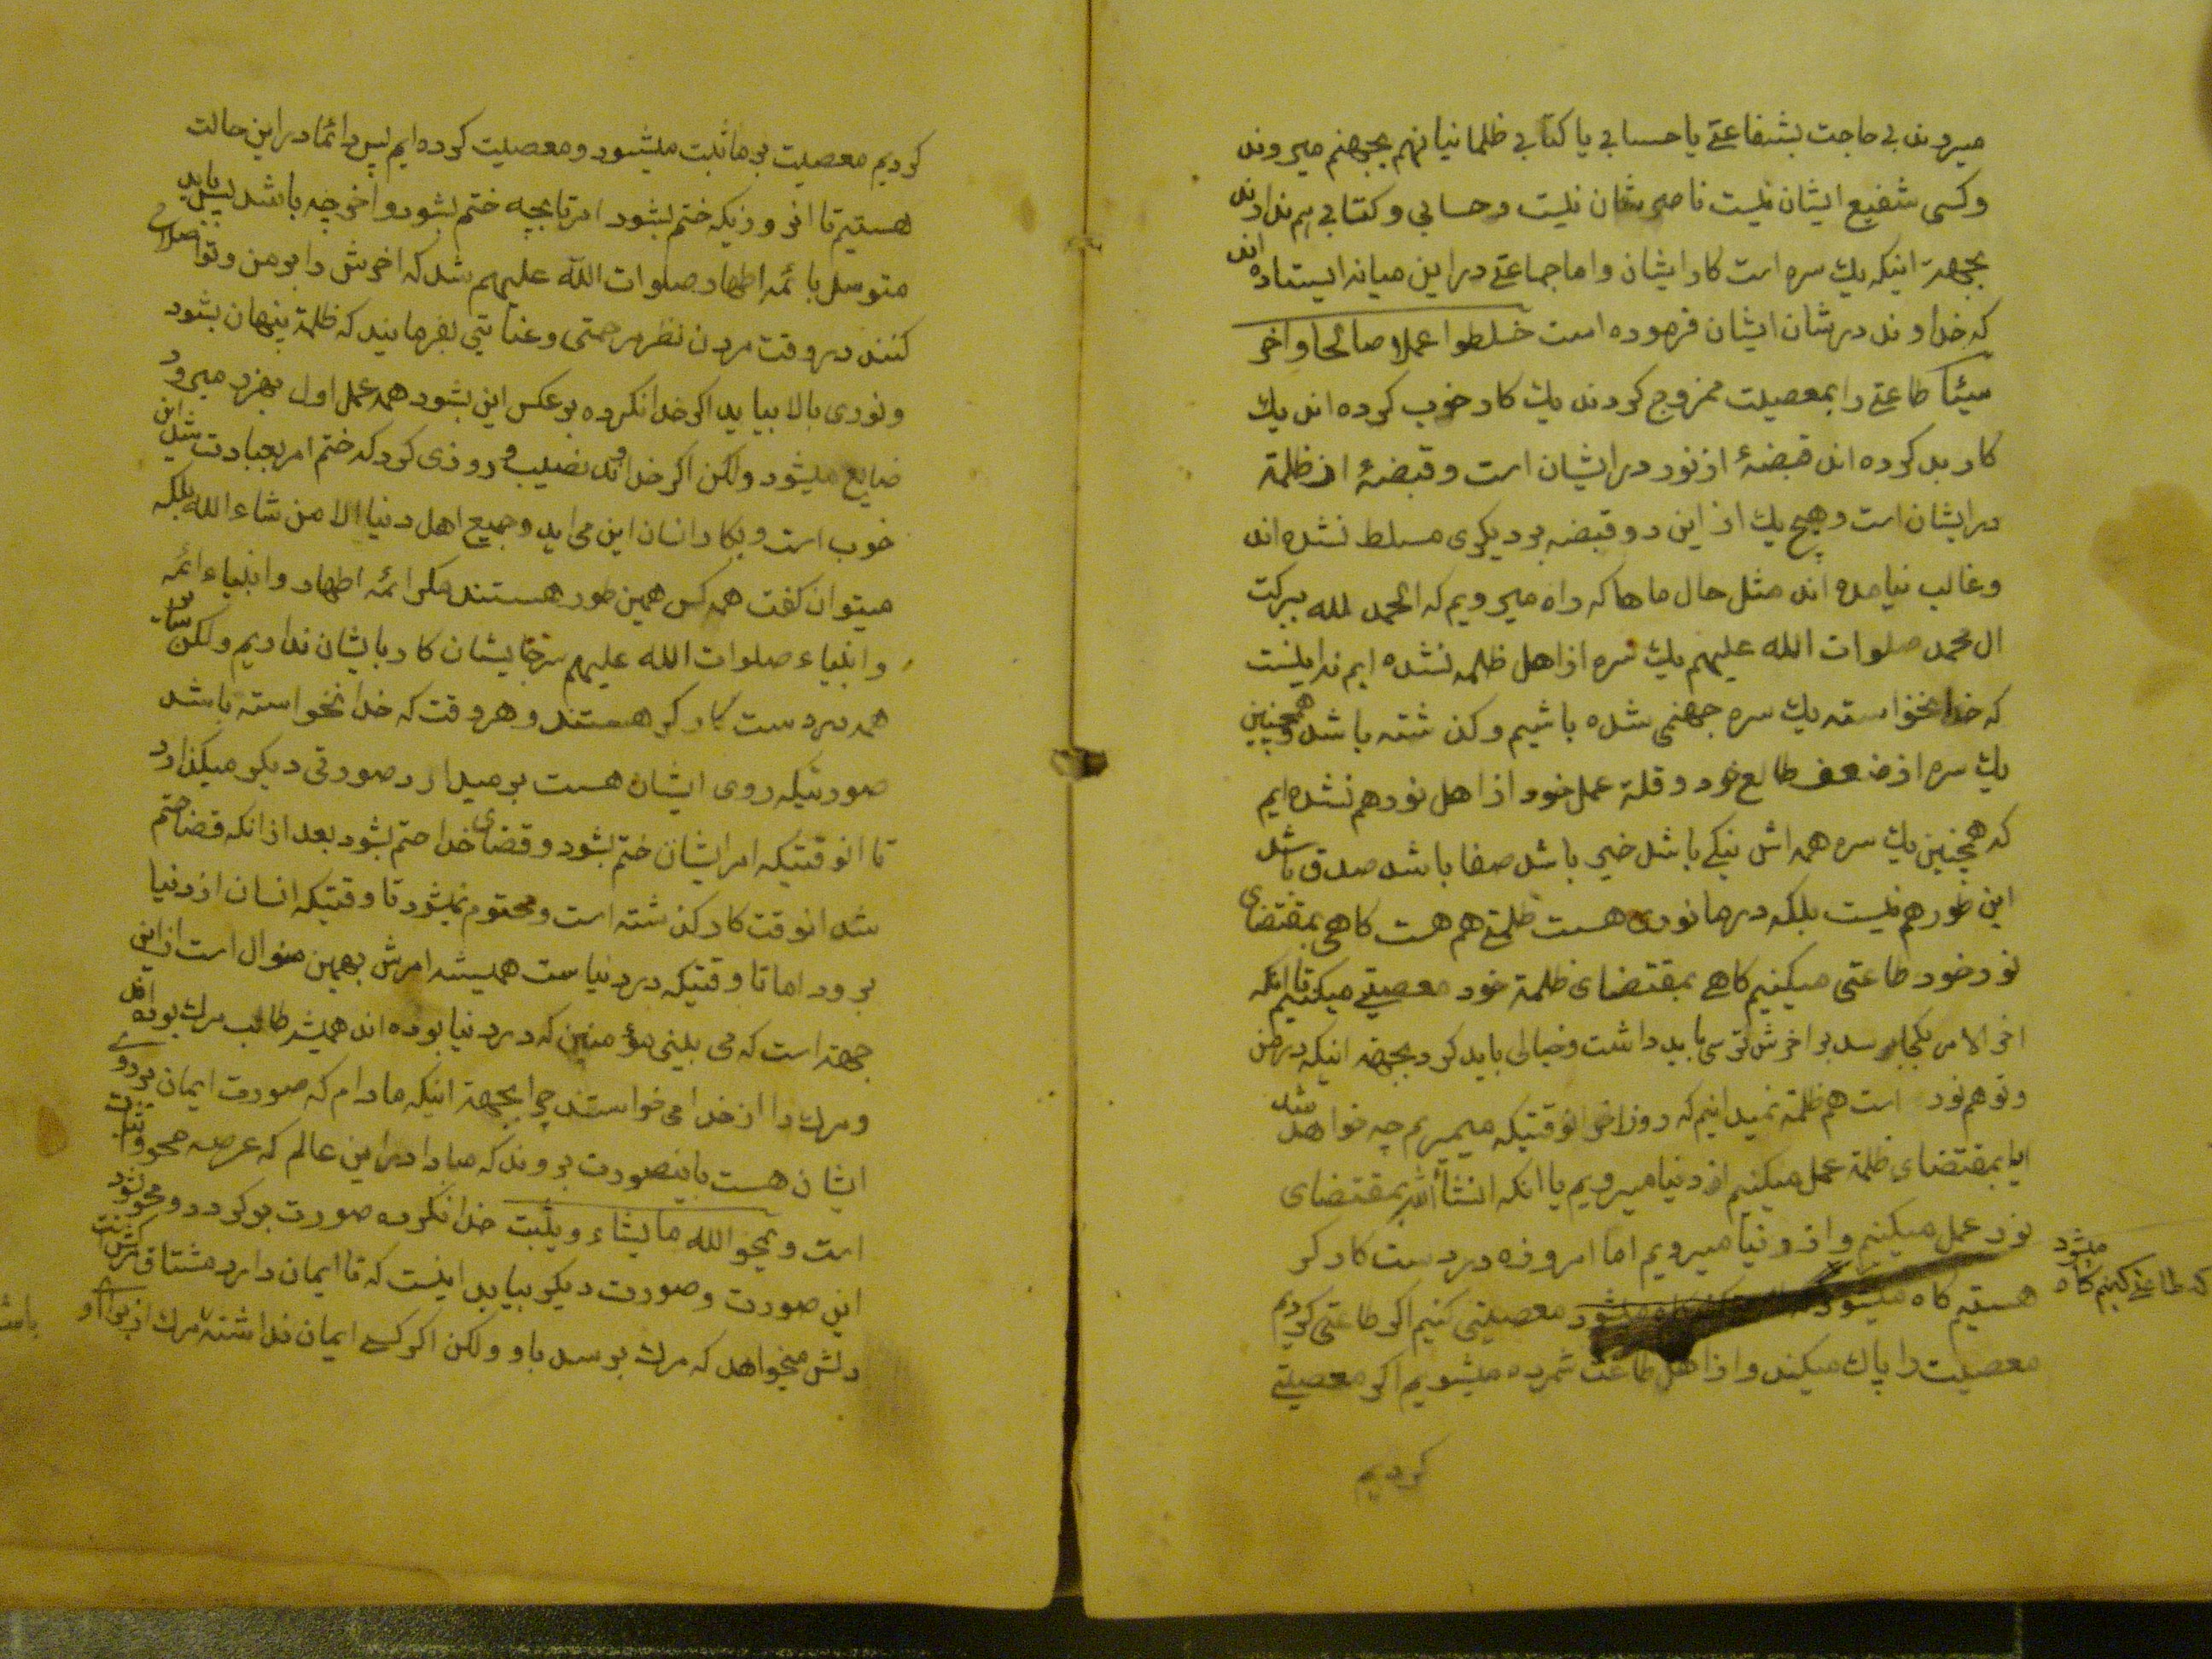 میروند بی حاجت بشفاعتی یا حسابی یا کتابی ظلمانیانهم بجهنم میروند
وکسی شفیع ایشان نیست ناصرشان نیست و حسابی و کتابی هم ندارند
بجهة اینکه یك سره است کار ایشان واما جماعتی در این میانه ایستاده اند
که خداوند در شان ایشان فرموده است خلطوا عملا صالحا واخر
سیئا طاعتی را بمعصیت ممزوج کردند یك کار خوب کرده اند یك
کار بد کرده اند قبضهٔ از نور در ایشان است وقبضهٔ از ظلمة
در ایشان است وهیچ یك از این دو قبضه بر دیکری مسلط نشده اند
وغالب نیامده اند مثل حال ماها که راه میرویم که الحمد لله ببرکت
ال محمد صلوات الله علیهم یك سره از اهل ظلمه نشده ایم نه اینست
که خدا نخواسته یك سره جهنمی شده باشیم وکذشته باشد وهمچنین
یك سره از ضعف طالع خود وقلة عمل خود از اهل نور هم نشده ایم
که همچنین یك سره همه اش نیکی باشد خیر باشد صفا باشد صدق باشد
این طور هم نیست بلکه در ما نوری هست ظلمتی هم هست کاهی بمقتضای
نور خود طاعتی میکنیم کاهی بمقتضای ظلمة خود معصیتی میکنیم تا انکه
اخر الامر بکجا برسد بر اخرش ترسی باید داشت وخیالی باید کرد بجهة اینکه در من
وتو هم نور است هم ظلمة نمیدانیم که روز اخر انوقتیکه میمیریم چه خواهد شد
ایا بمقتضای ظلمة عمل میکنیم از دنیا میرویم یا انکه انشاء الله بمقتضای
نور عمل میکنیم و از دنیا میرویم اما امروزه در دست کارکر
هستیم کاه میشود که طاعتی کنیم کاه میشود معصیتی کنیم اکر طاعتی کردیم
معصیت را پاك میکند واز اهل طاعت شمرده میشویم اکر معصیتی
کردیم
کردیم معصیت بر ما ثبت میشود ومعصیت کرده ایم پس دائما در این حالت
هستیم تا انروزیکه ختم بشود امر تا بچه ختم بشود واخر چه باشد پس باید
متوسل بائمه اطهار صلوات الله علیهم شد که اخرش را بر من وتو
کنند در وقت مردن نظر رحمتی وعنایتی بفرمایند که ظلمة پنهان بشود
ونوری بالا بیاید اکر خدا نکرده بر عکس این بشود همه عمل اول بهدر میرود
ضایع میشود ولکن اکر خداوند نصیب و روزی کرد که ختم امر بعبادت شد این
خوب است وبکار انسان این می اید وجمیع اهل دنیا الا من شاء الله بلکه
میتوان کفت همه کس همین طور هستند مکر ائمه اطهار وانبیاء ائمه
وانبیاء صلوات الله علیهم کار بایشان نداریم ولکن
همه در دست کارکر هستند وهر وقت که خدا نخواسته باشد
صورتیکه روی ایشان هست بر میدارد صورتی دیکر میکذارد
تا انوقتیکه امر ایشان ختم بشود وقضای خدا حتم بشود بعد از انکه قضا حتم
شد انوقت کار کذشته است ومحتوم نمیشود تا وقتیکه انسان از دنیا
برود اما تا وقتیکه در دنیاست همیشه امرش بهمین منوال است از این
جهة است که می بینی مؤمنین که در دنیا بوده اند همیشه طالب مرك بوده اند
ومرك را از خدا می خواستند چرا بجهة اینکه مادام که صورت ایمان بر روی
ایشان هست باینصورت بروند که مبادا در این عالم که عرصه محو واثبات
است ویمحو الله ما یشاء ویثبت خدا نکرده صورت بر کردد ومحو بشود
این صورت وصورت دیکر بیاید اینست که تا ایمان دارد مشتاق
دلش میخواهد که مرك برسد باو ولکن اکر کسی ایمان نداشته مرك از برای او